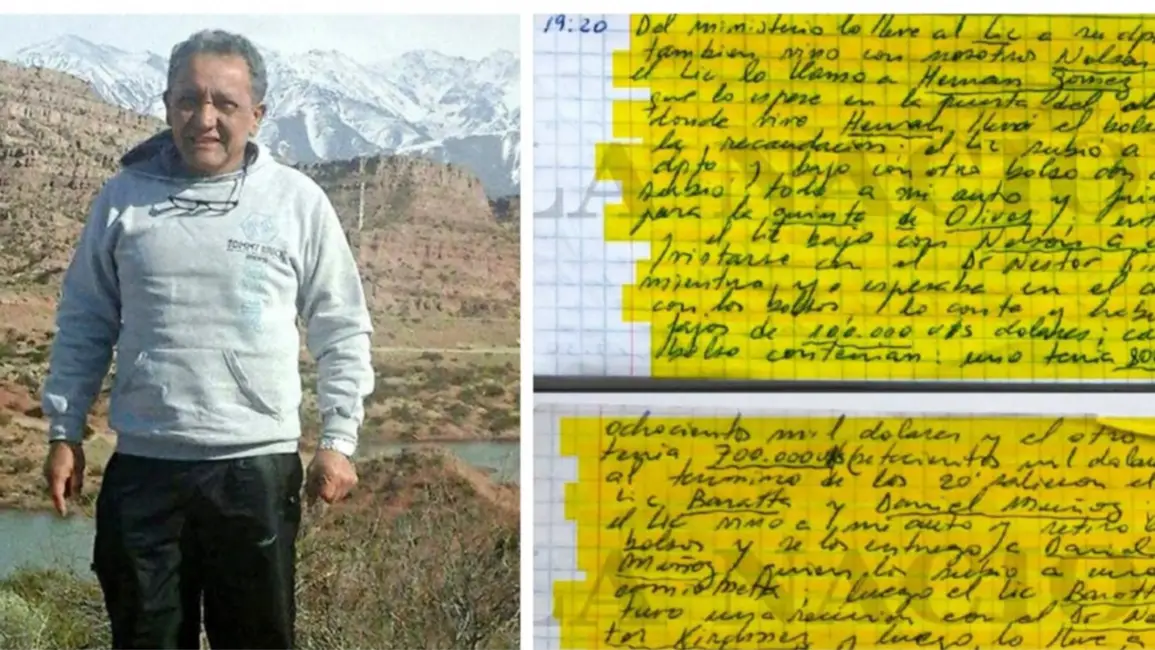 19:20 Del ministerio lo lleve al Lic a su dpt
tambien vino con nosotro Nelson
el Lic lo llamo a Hernan Gomez
que lo espere en la puerta del
donde vive Hernan llevó el bols
la recaudacion; el Lic subio a
dpto y bajo con otro bolso con
subio todo a mi auto y
para la quinta de Olivos;
el Lic bajo con Nelson a
con el Dr Nestor
mientra yo esperaba en el a
con los bolsos lo conte y habi
fajos de 100.000 u$s dolares; ca
bolso contenian: uno tenia 800
LA NACIO
ochociento mil dolares y el otro
tenia 700.000 u$s (setecientos mil dolar
al termino de los 20' salieron el
Lic Baratta y Daniel Muñoz;
el Lic vino a mi auto y retiro
bolsos y se los entrego a Daniel
Muñoz quien los subio a una
camioneta; luego el Lic Baratt
tuvo una reunion con el Dr Ne
tor Kirchner y luego lo lleve a
LA NACIO